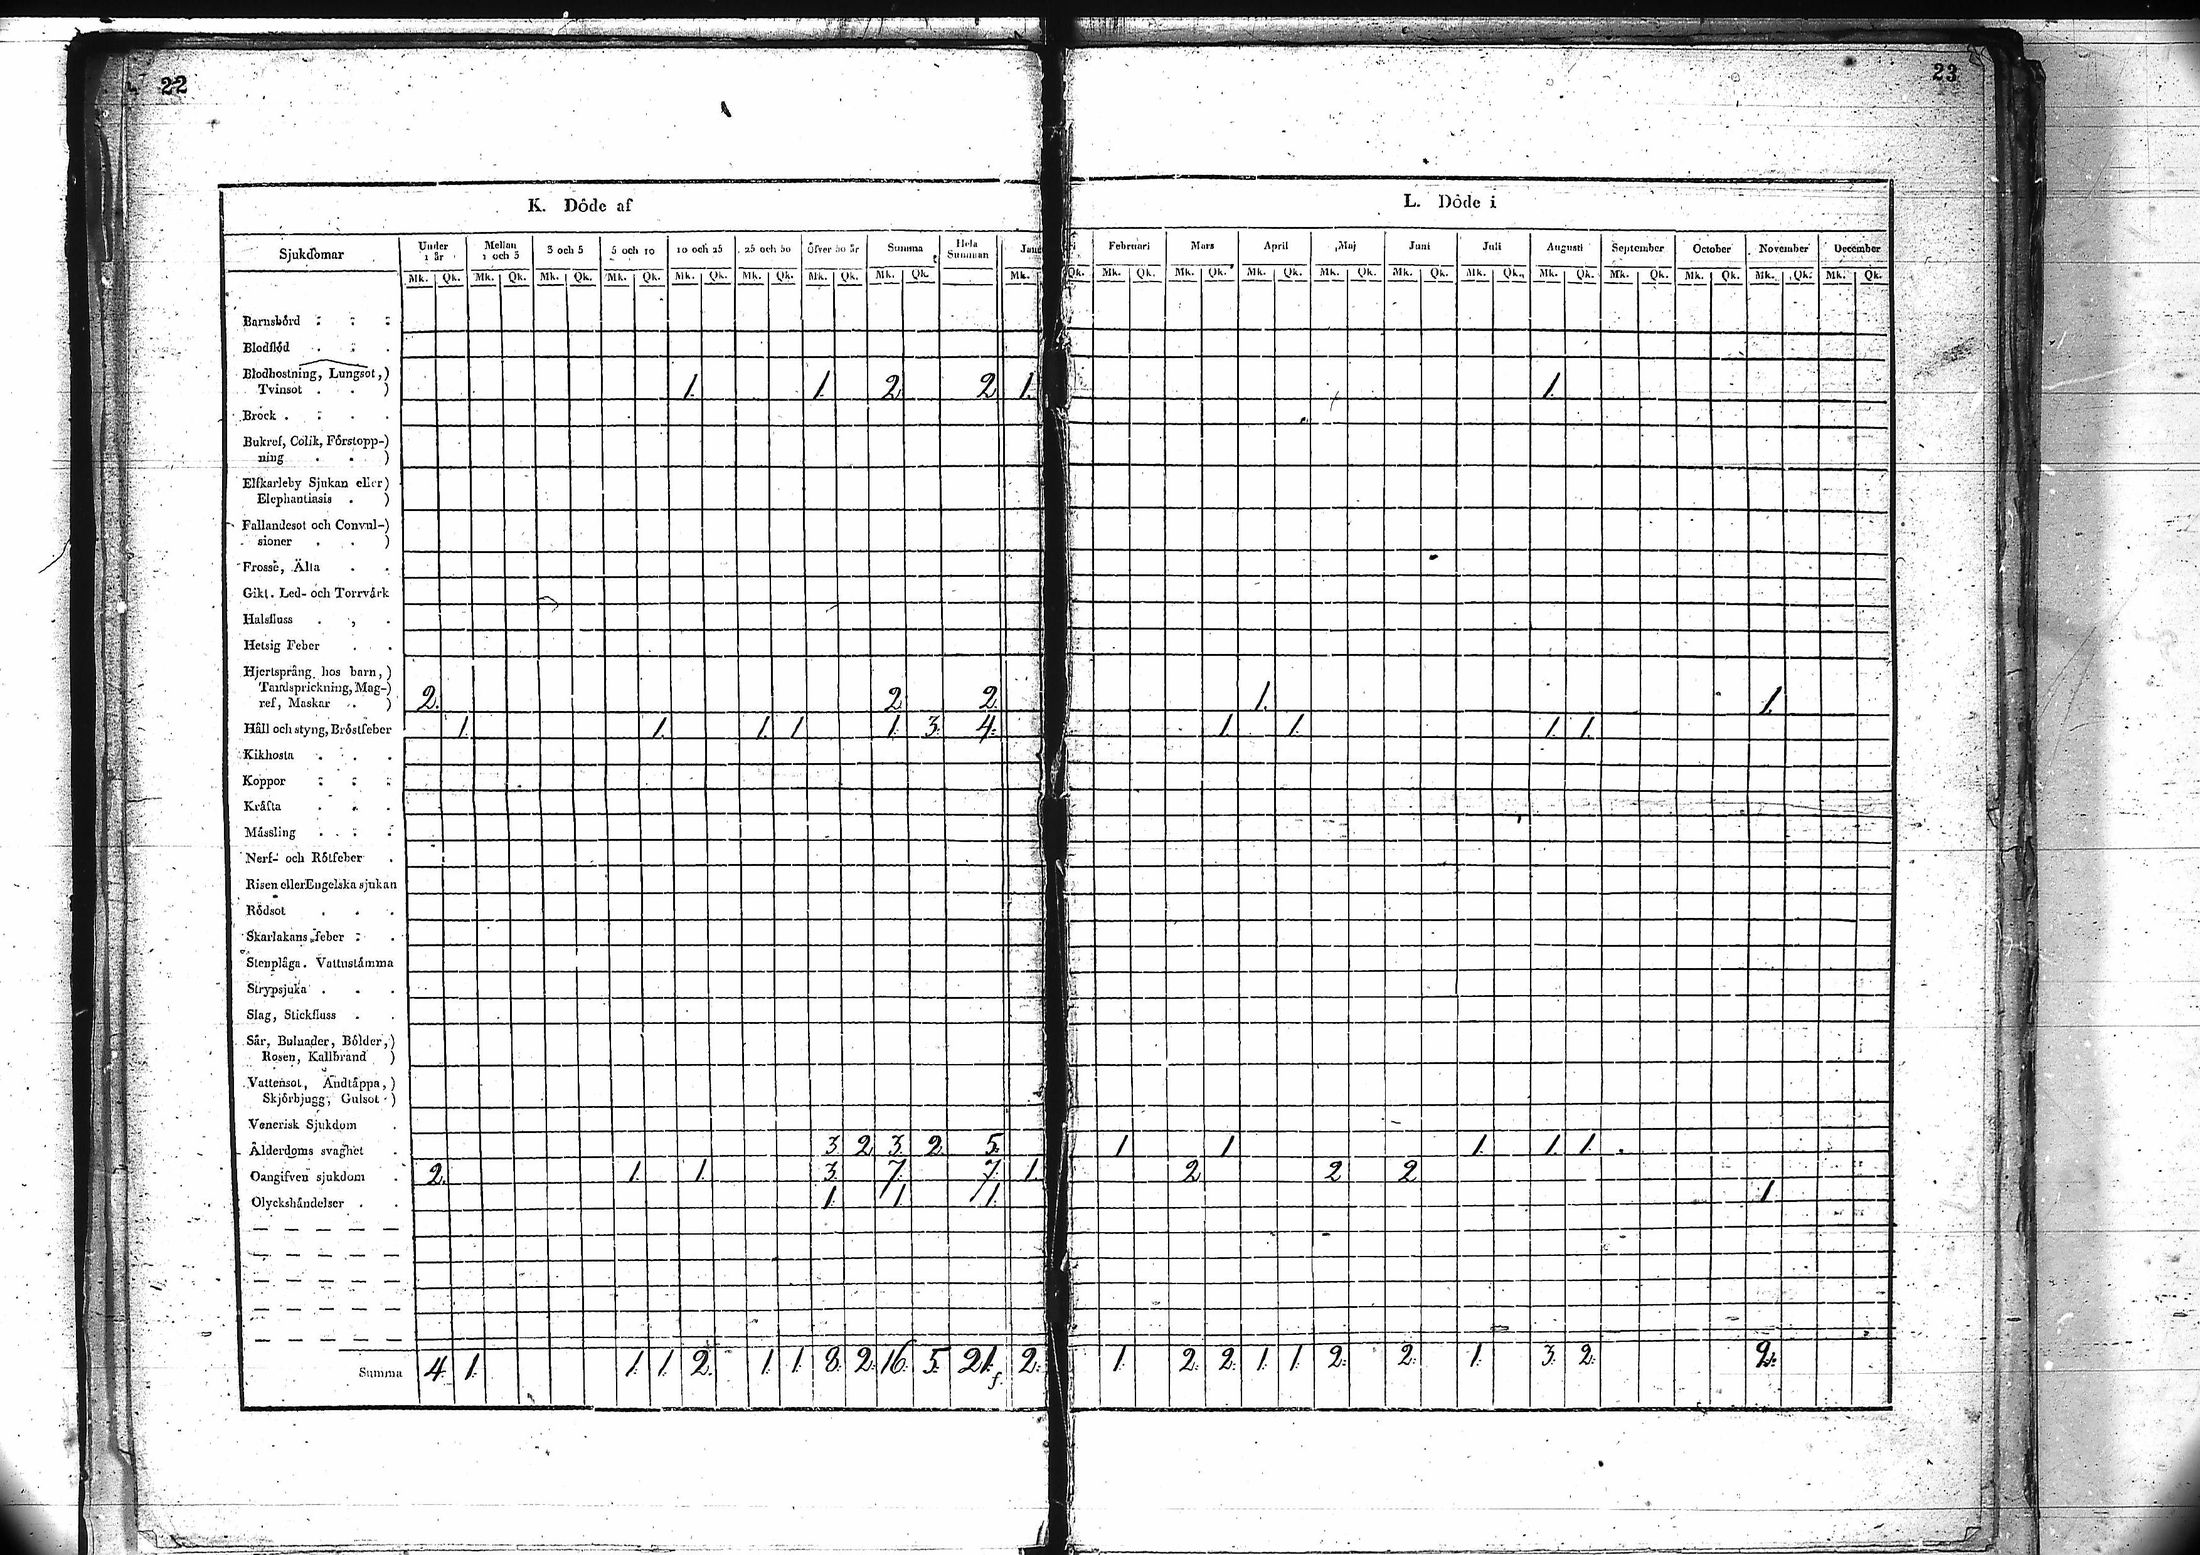 22
23
K. Döde af
L. Döde i
Sjukdomar
Under 1 år
Mellan 1 och 3
3 och 5
5 och 10
10 och 25
25 och 50
Öfver 50 år
Summa
Hela Summan
Februari
Mars
April
Maj
Juni
Juli
Augusti
September
October
November
December
Mk. Qk. Mk. Qk. Mk. Qk. Mk. Qk. Mk. Qk. Mk. Qk. Mk. Qk. Mk. Qk. Mk. Qk. Mk. Qk. Mk. Qk. Mk. Qk. Mk. Qk. Mk. Qk. Mk. Qk. Mk. Qk. Mk. Qk. Mk. Qk. Mk. Qk. Mk. Qk.
Barnsbörd
Blodflöd
Blodhostning, Lungsot,)
Tvinsot . . ) 1. 1. 2 2 1. 1.
Bråck
Bukref, Colik, Förstopp-)
ning . . )
Elfkarleby Sjukan eller)
Elephantiasis . )
Fallandesot och Convul-)
sioner . . )
Frossa, Älta
Gikt. Led- och Torrvärk
Halsfluss
Hetsig Feber
Hjertsprång hos barn,)
Tandsprickning, Mag-)
ref, Maskar . ) 2. 2. 2. 1. 1.
Håll och styng, Bröstfeber 1. 1. 1. 1. 1. 3. 4. 1. 1. 1. 1.
Kikhosta
Koppor
Kräfta
Mässling
Nerf- och Rötfeber
Risen eller Engelska sjukan
Rödsot
Skarlakans feber
Stenplåga. Vattustämma
Strypsjuka
Slag, Stickfluss
Sår, Bulnader, Bölder,)
Rosen, Kallbrand )
Vattensot, Andtäppa,)
Skjörbjugg, Gulsot )
Venerisk Sjukdom
Ålderdoms svaghet 3. 2 3. 2. 5. 1. 1. 1. 1. 1.
Oangifven sjukdom 2. 1. 1. 3. 7. 7. 1. 2 2 2
Olyckshändelser 1. 1. 1. 1.
Summa 4. 1. 1. 1. 2. 1. 1. 8. 2. 16. 5. 21. 2. 1. 2. 2. 1. 1. 2. 2. 1. 3. 2. 2.